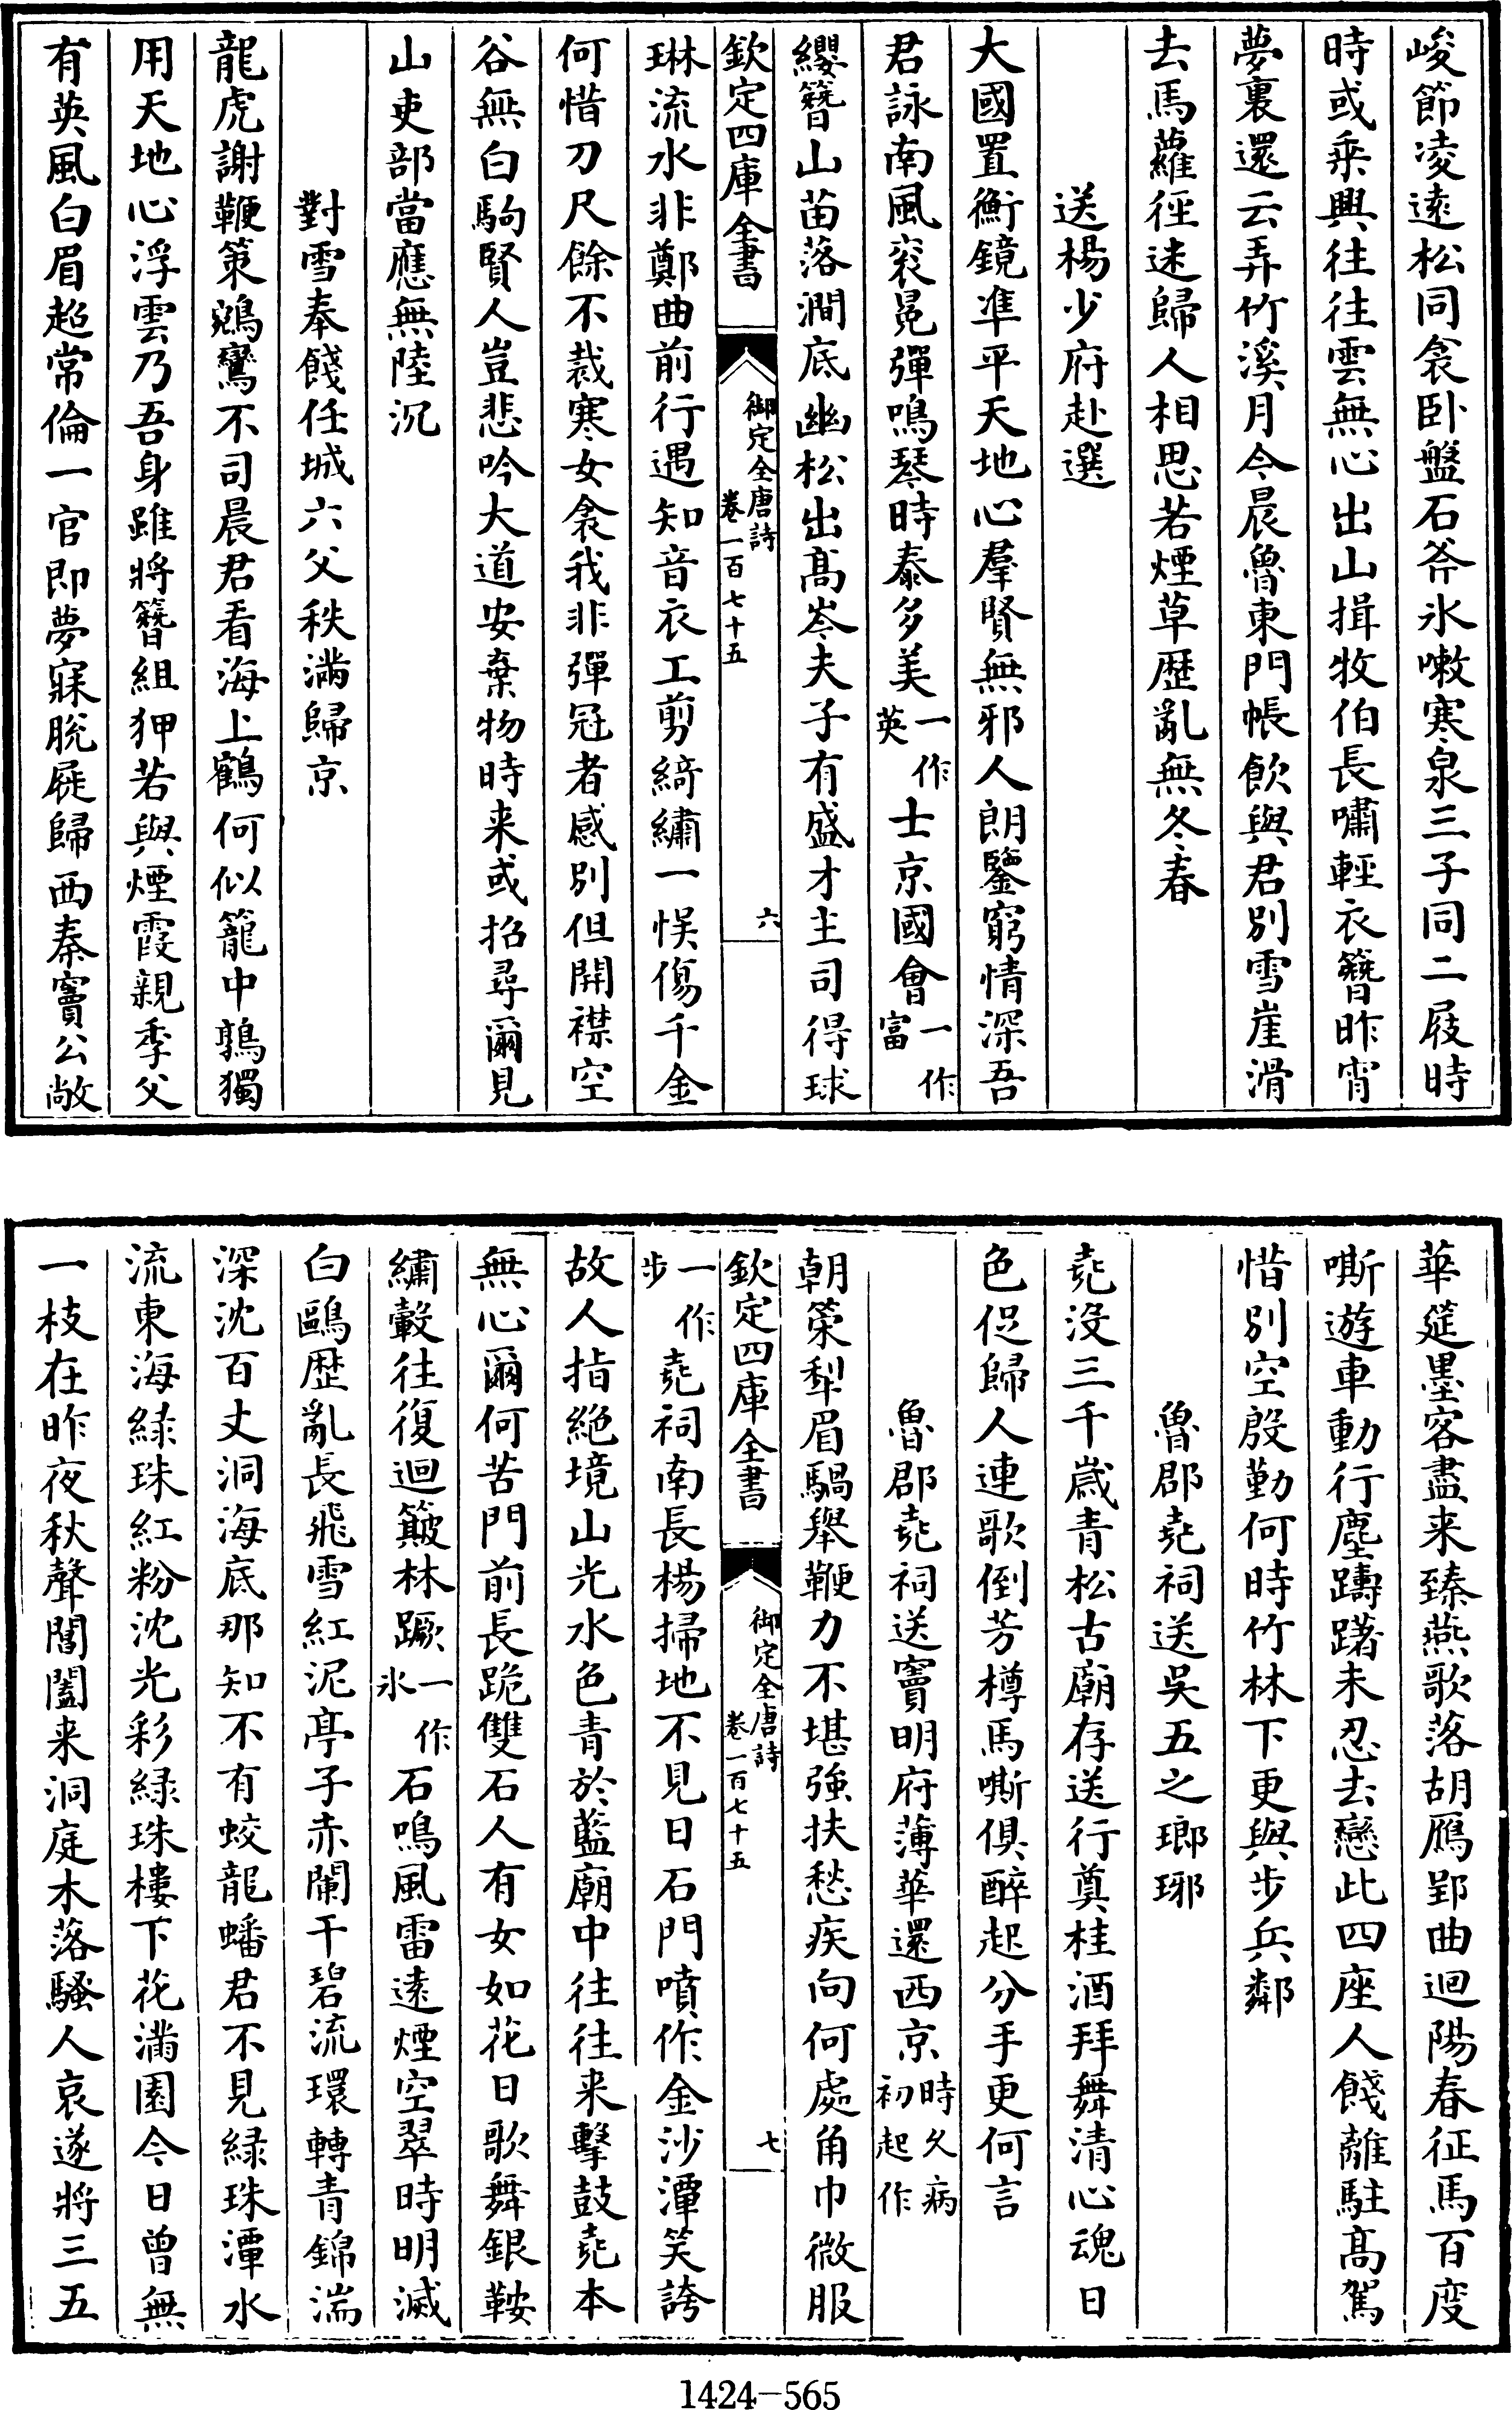 峻節凌遠松同衾卧盤石斧氷嗽寒泉三子同二屐時
時或乘興往往雲無心出山揖牧伯長嘯輕衣簪昨宵
夢裏還云弄竹溪月今晨魯東門帳飲與君別雪崖滑
去馬蘿徑迷歸人相思若煙草歴亂無冬春
送楊少府赴選
大國置衡鏡準平天地心羣賢無邪人朗鑒窮情深吾
君詠南風衮冕彈鳴琴時泰多美一作英士京國會一作富
纓簪山苗落澗底幽松出髙岑夫子有盛才主司得球
欽定四庫全書
御定全唐詩
卷一百七十五
六
琳流水非鄭曲前行遇知音衣工剪綺繡一悮傷千金
何惜刀尺餘不裁寒女衾我非彈冠者感別但開襟空
谷無白駒賢人豈悲吟大道安棄物時来或招尋爾見
山吏部當應無陸沉
對雪奉餞任城六父秩滿歸京
龍虎謝鞭策鵷鸞不司晨君看海上鶴何似籠中鶉獨
用天地心浮雲乃吾身雖將簪組狎若與煙霞親季父
有英風白眉超常倫一官即夢寐脫屣歸西秦竇公敞
華筵墨客盡来臻燕歌落胡鴈郢曲迴陽春征馬百度
嘶遊車動行塵躊躇未忍去戀此四座人餞離駐髙駕
惜別空殷勤何時竹林下更與步兵鄰
魯郡堯祠送吳五之瑯琊
堯沒三千歳青松古廟存送行奠桂酒拜舞清心魂日
色促歸人連歌倒芳樽馬嘶俱醉起分手更何言
魯郡堯祠送竇明府薄華還西京時久病初起作
朝策犁眉騧舉鞭力不堪強扶愁疾向何處角巾微服
欽定四庫全書
御定全唐詩
卷一百七十五
七
一作步堯祠南長楊掃地不見日石門噴作金沙潭笑誇
故人指絶境山光水色青於藍廟中往往来擊鼓堯本
無心爾何苦門前長跪雙石人有女如花日歌舞銀鞍
繡轂往復迴簸林蹶一作氷石鳴風雷遠煙空翠時明滅
白鷗歴亂長飛雪紅泥亭子赤闌干碧流環轉青錦湍
深沈百丈洞海底那知不有蛟龍蟠君不見緑珠潭水
流東海緑珠紅粉沈光彩緑珠樓下花滿園今日曾無
一枝在昨夜秋聲閶闔来洞庭木落騷人哀遂將三五
1424-565